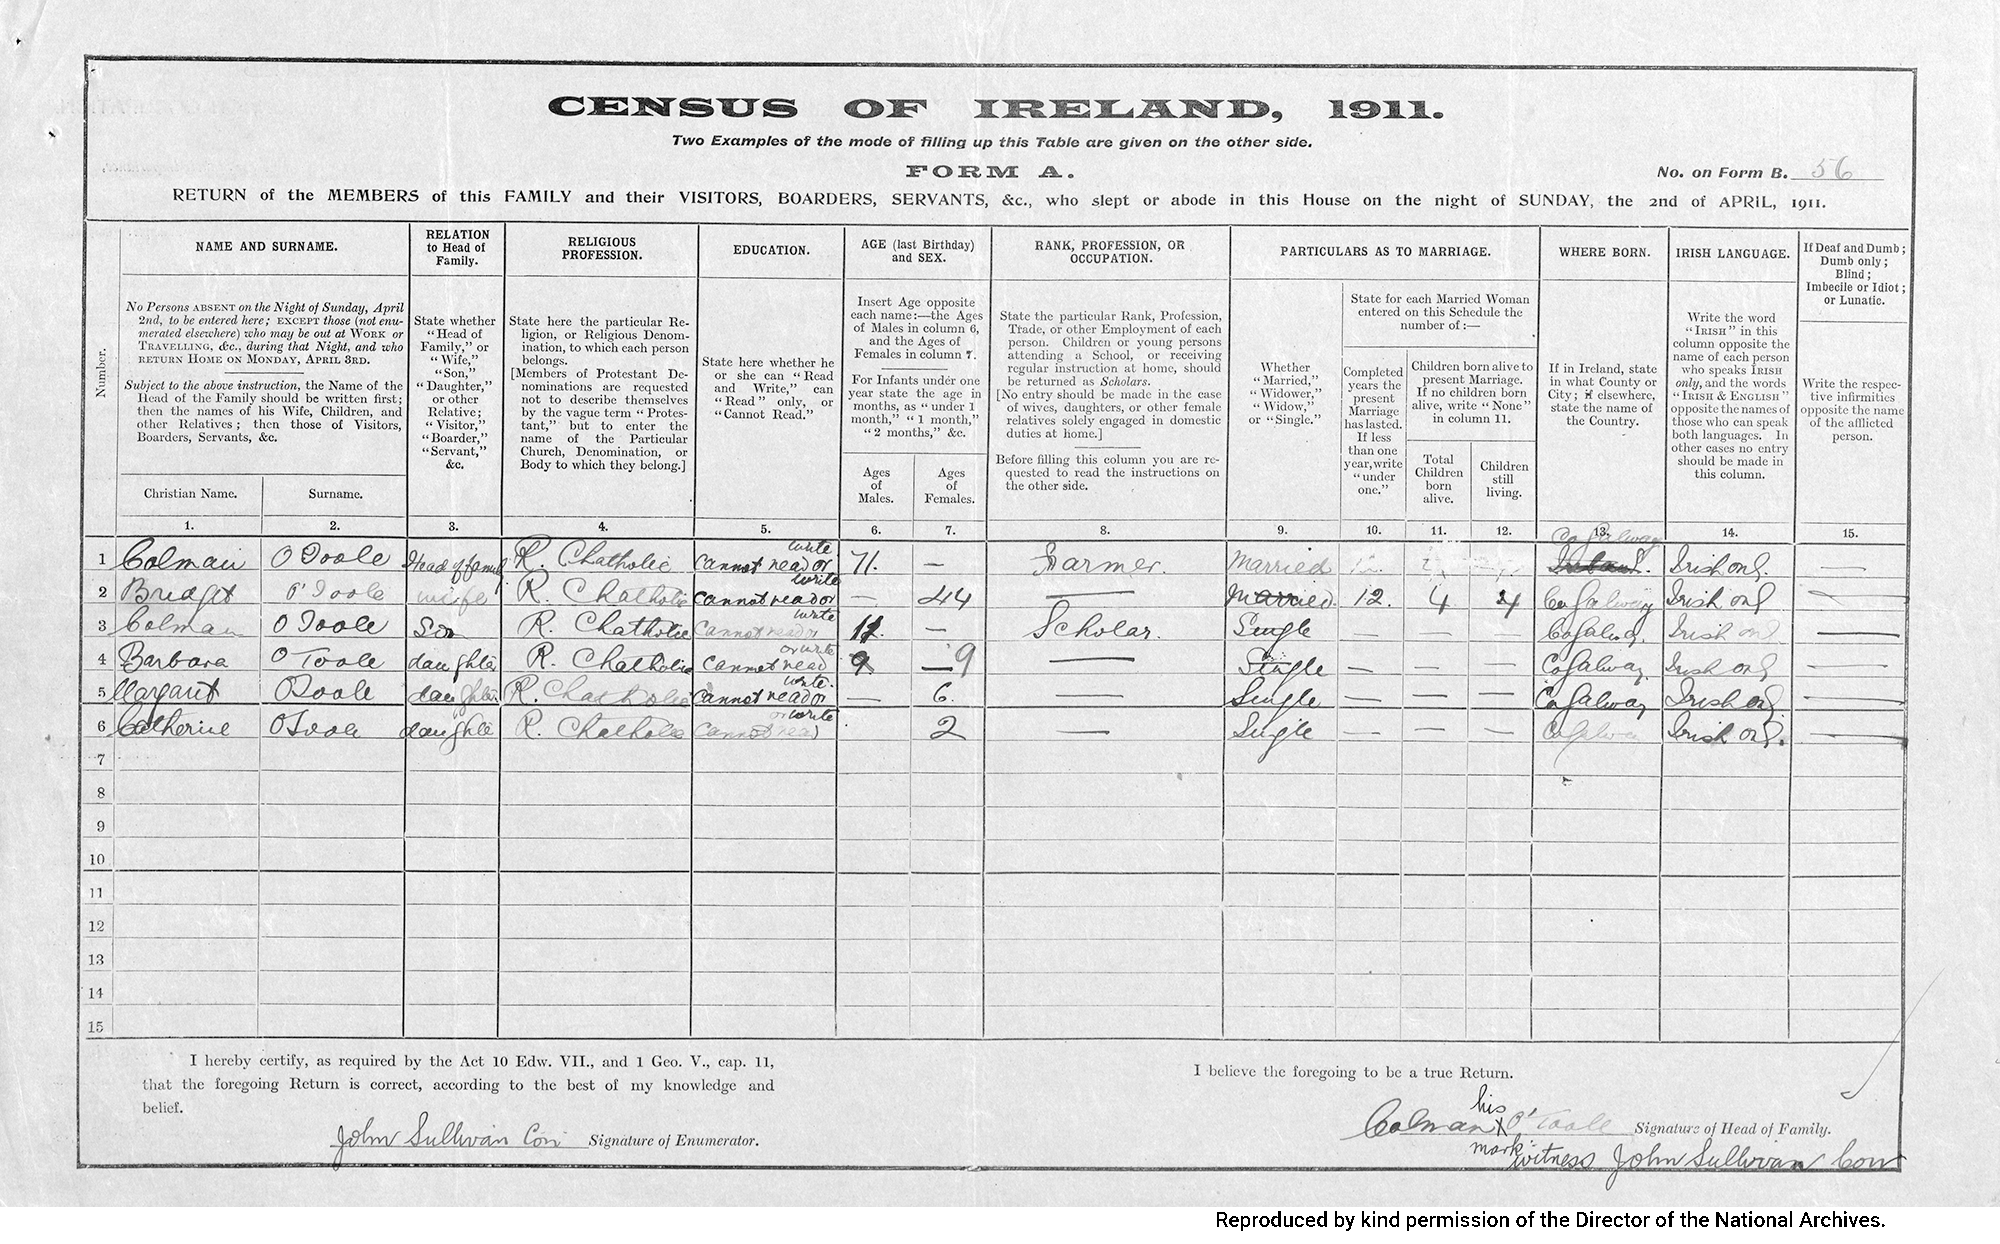 CENSUS OF IRELAND, 1911.
Two Examples of the mode of filling up this Table are given on the other side.
FORM A.
No. on Form B. 56
RETURN of the MEMBERS of this FAMILY and their VISITORS, BOARDERS, SERVANTS, &c., who slept or abode in this House on the night of SUNDAY, the 2nd of APRIL, 1911.
Number.
NAME AND SURNAME.
No Persons ABSENT on the Night of Sunday, April
2nd, to be entered here; EXCEPT those (not enu-
merated elsewhere) who may be out at WORK or
TRAVELLING, &c., during that Night, and who
RETURN HOME ON MONDAY, APRIL 3RD.
Subject to the above instruction, the Name of the
Head of the Family should be written first;
then the names of his Wife, Children, and
other Relatives; then those of Visitors,
Boarders, Servants, &c.
Christian Name.
Surname.
RELATION
to Head of
Family.
State whether
"Head of
Family," or
"Wife,"
"Son,"
"Daughter,"
or other
Relative;
"Visitor,"
"Boarder,"
"Servant,"
&c.
RELIGIOUS
PROFESSION.
State here the particular Re-
ligion, or Religious Denom-
ination, to which each person
belongs.
[Members of Protestant De-
nominations are requested
not to describe themselves
by the vague term "Protes-
tant," but to enter the
name of the Particular
Church, Denomination, or
Body to which they belong.]
EDUCATION.
State here whether he
or she can "Read
and Write," can
"Read" only, or
"Cannot Read."
AGE (last Birthday)
and SEX.
Insert Age opposite
each name:—the Ages
of Males in column 6,
and the Ages of
Females in column 7.
For Infants under one
year state the age in
months, as "under 1
month," "1 month,"
"2 months," &c.
Ages
of
Males.
Ages
of
Females.
RANK, PROFESSION, OR
OCCUPATION.
State the particular Rank, Profession,
Trade, or other Employment of each
person. Children or young persons
attending a School, or receiving
regular instruction at home, should
be returned as Scholars.
[No entry should be made in the case
of wives, daughters, or other female
relatives solely engaged in domestic
duties at home.]
Before filling this column you are re-
quested to read the instructions on
the other side.
PARTICULARS AS TO MARRIAGE.
Whether
"Married,"
"Widower,"
"Widow,"
or "Single."
State for each Married Woman
entered on this Schedule the
number of:—
Completed
years the
present
Marriage
has lasted.
If less
than one
year, write
"under
one."
Children born alive to
present Marriage.
If no children born
alive, write "None"
in column 11.
Total
Children
born
alive.
Children
still
living.
WHERE BORN.
If in Ireland, state
in what County or
City; if elsewhere,
state the name of
the Country.
IRISH LANGUAGE.
Write the word
"IRISH" in this
column opposite the
name of each person
who speaks IRISH
only, and the words
"IRISH & ENGLISH"
opposite the names of
those who can speak
both languages. In
other cases no entry
should be made in
this column.
If Deaf and Dumb;
Dumb only;
Blind;
Imbecile or Idiot;
or Lunatic.
Write the respec-
tive infirmities
opposite the name
of the afflicted
person.
1. 2. 3. 4. 5. 6. 7. 8. 9. 10. 11. 12. 13. 14. 15.
1 Colman O Toole Head of family R. Chatholic Cannot read or write 71. — Farmer. Married Co Galway Irish only. —
2 Bridget O'Toole wife R. Chatholic Cannot read or write — 44 — Married. 12. 4 4 Co Galway Irish only —
3 Colman O Toole Son R. Chatholic Cannot read or write 11. — Scholar. Single — — — Co Galway. Irish only —
4 Barbara O Toole daughter R. Chatholic Cannot read or write 9 — 9 — Single — — — Co Galway. Irish only —
5 Margaret O Toole daughter R. Chatholic Cannot read or write. — 6. — Single — — — Co Galway Irish only —
6 Catherine O Toole daughter R. Chatholic Cannot read or write 2 — Single — — — Co Galway Irish only. —
7
8
9
10
11
12
13
14
15
I hereby certify, as required by the Act 10 Edw. VII., and 1 Geo. V., cap. 11,
that the foregoing Return is correct, according to the best of my knowledge and
belief.
John Sullivan Con Signature of Enumerator.
I believe the foregoing to be a true Return.
his
Colman X O'Toole Signature of Head of Family.
mark
witness John Sullivan Con
Reproduced by kind permission of the Director of the National Archives.